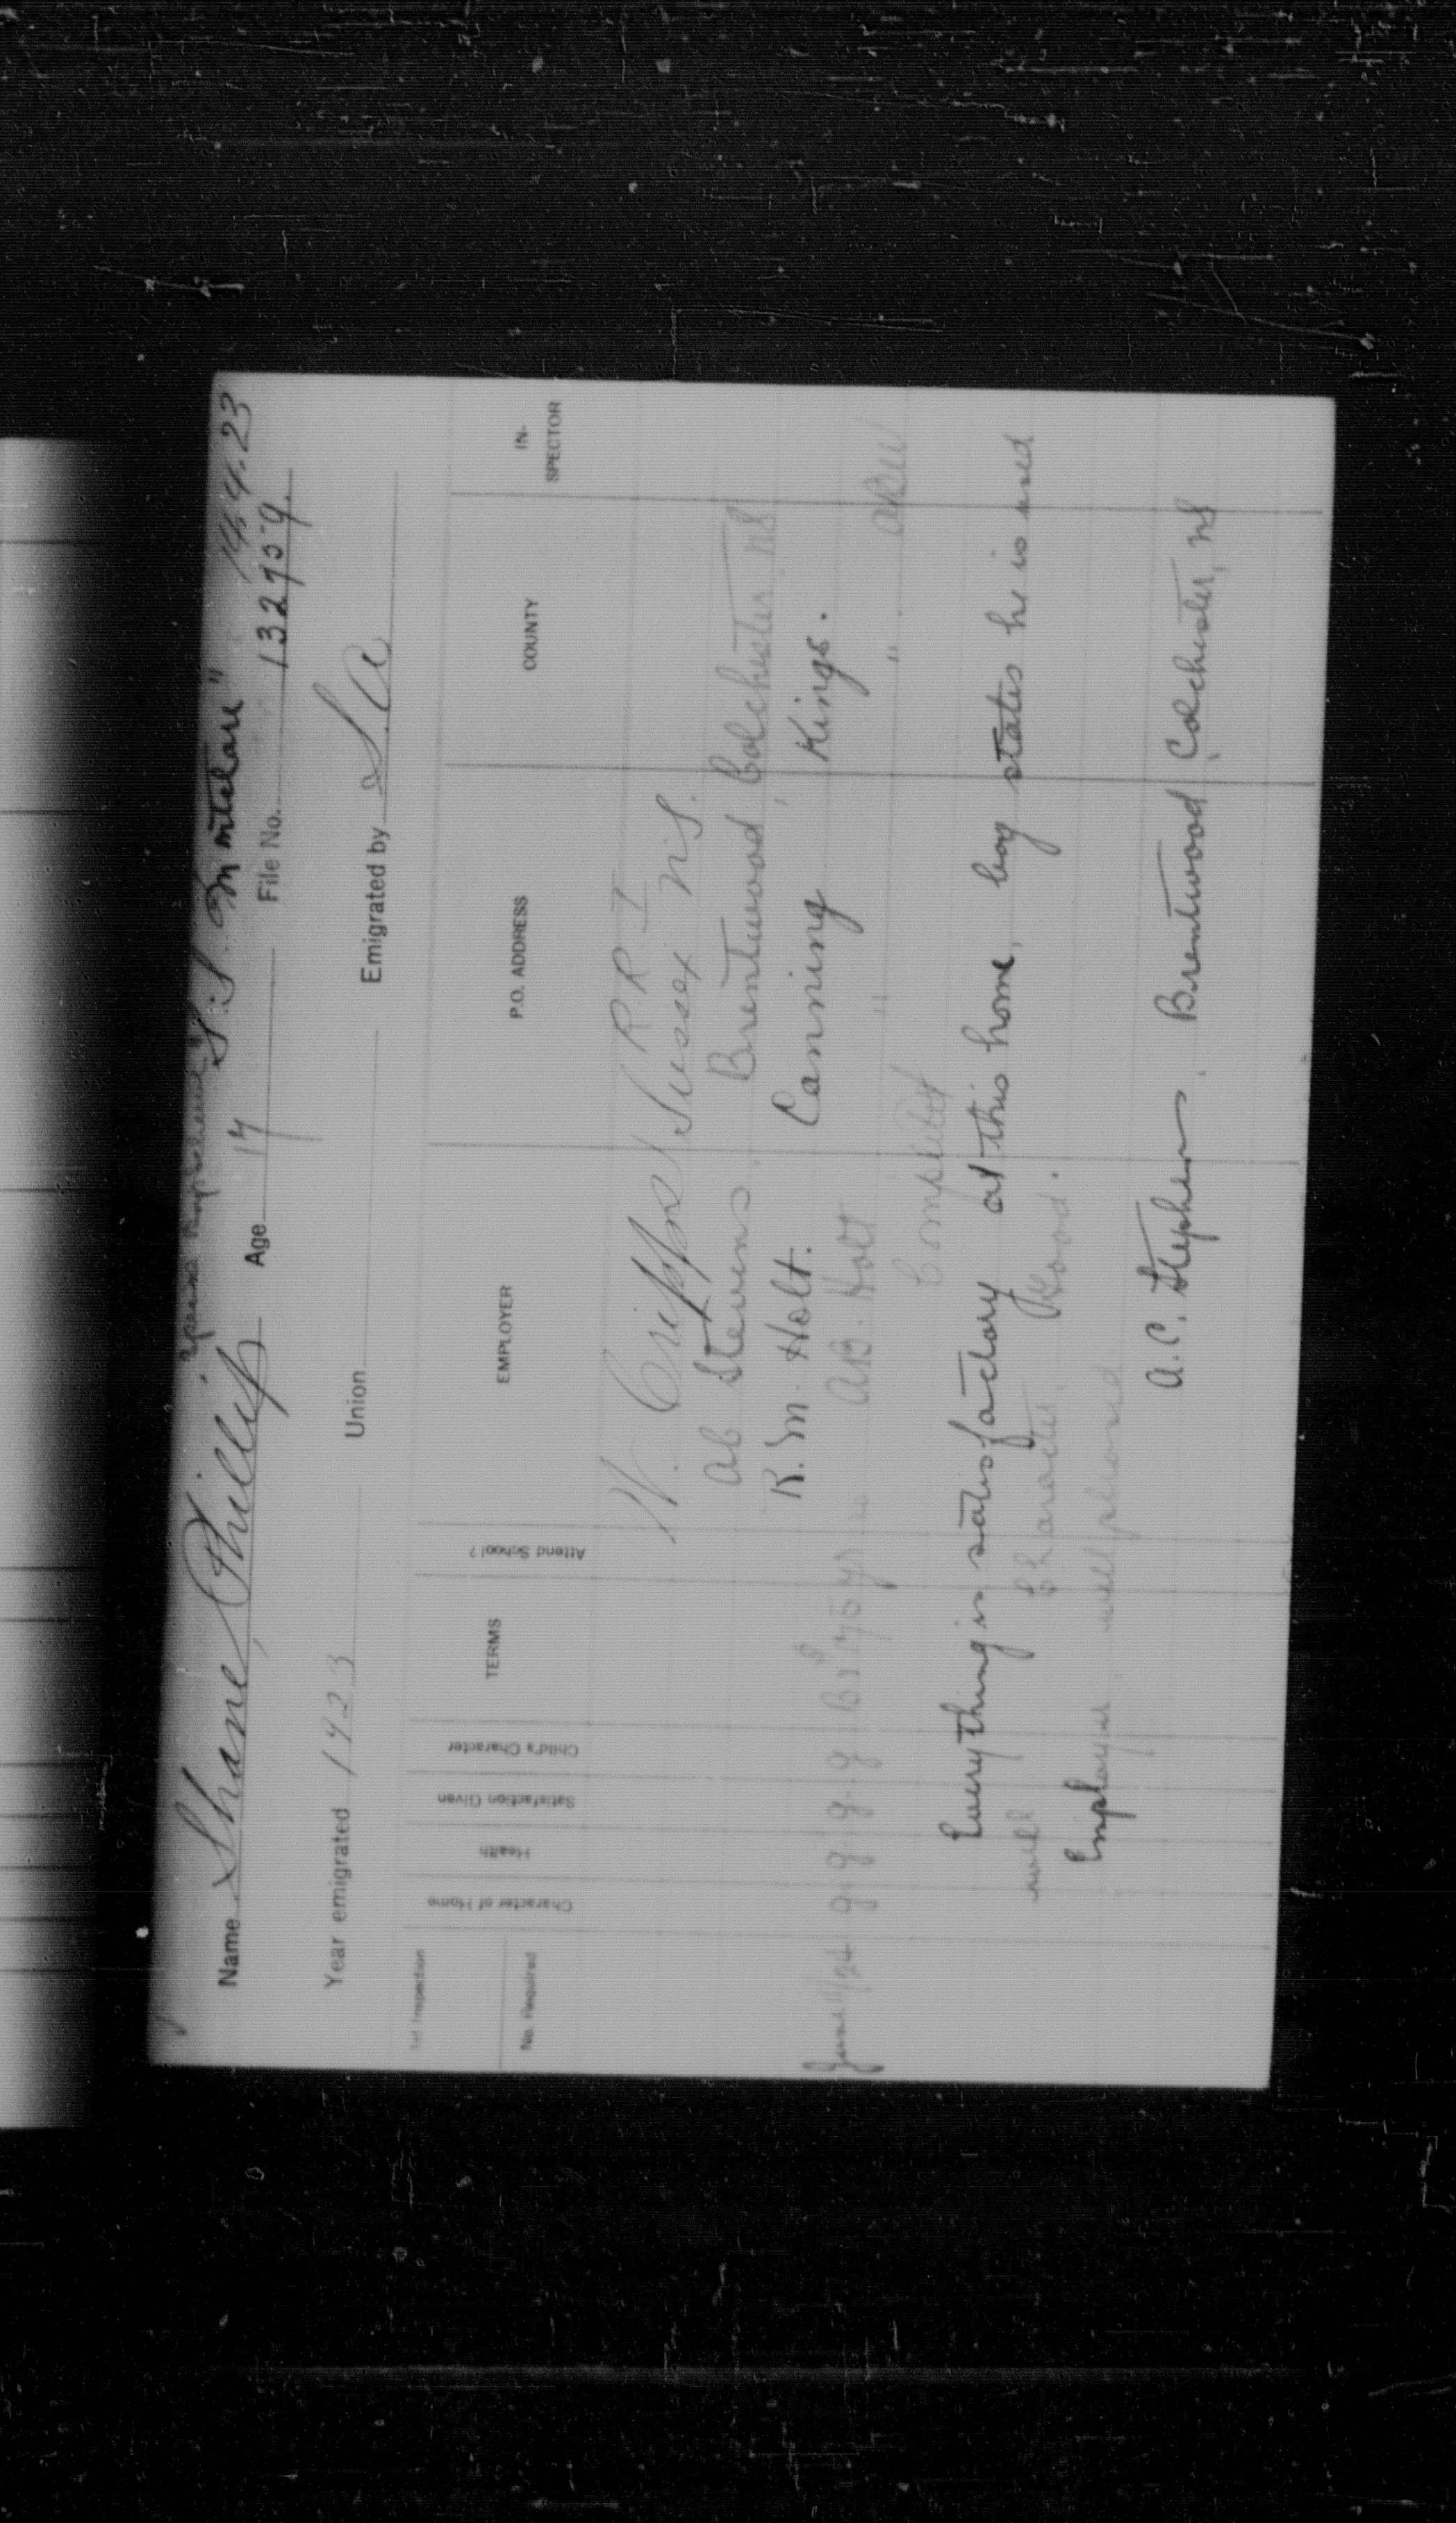 S.S. "Montclare" 14.4.23
Name Shane, Phillip Age 14 File No. 132959.
Year emigrated 1923 Union Emigrated by S.A
1st Inspection
No. Required
Character of Home Health Satisfaction Given Child's Character TERMS Attend School? EMPLOYER P.O. ADDRESS COUNTY IN-SPECTOR
W. Cripps R.R. I
Sussex N.S.
Ab Stevens Brentwood, Colchester, NS
R. M. Holt. Canning Kings.
June /24 g g. g. g B & $75 yr no AB. Holt " " ABW
Completed
Everything is satisfactory at this home, boy states he is used
well Character Good.
Employer, well pleased.
A. C. Stephens, Brentwood, Colchester, NS